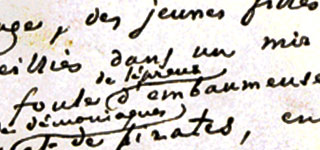 age, des jeunes filles
eillis dans un mir
de lépreux
foule d'embaumeuse
de démoniaques
et de pirates, en